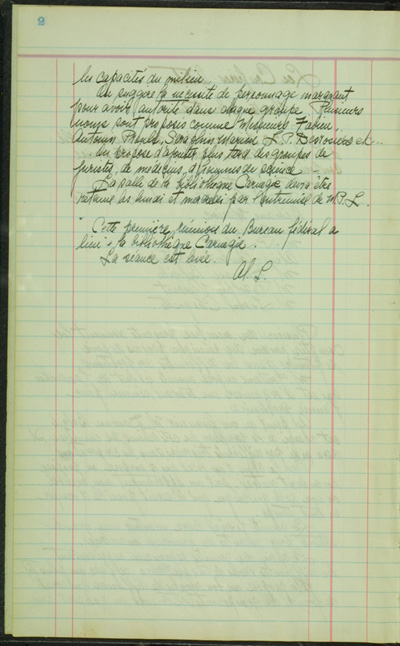 2
les capacités du milieu.
On suggère la nécessité de personnage marquant
pour avoir autorité dans chaque groupe. Plusieurs
noms sont proposés comme Messieurs
Antonin Séraphin Marion, L. P. Desrosiers et...
On propose d'ajouter plus tard des groupes de
juristes, de médecins, d'hommes de science.
La salle de la bibliothèque Carnegie devra être
retenue les lundi et mercredi par l'entremise de M. P. L.
Cette première réunion du Bureau fédéral a
lieu à la bibliothèque Carnegie.
La séance est levée.
Al. L.